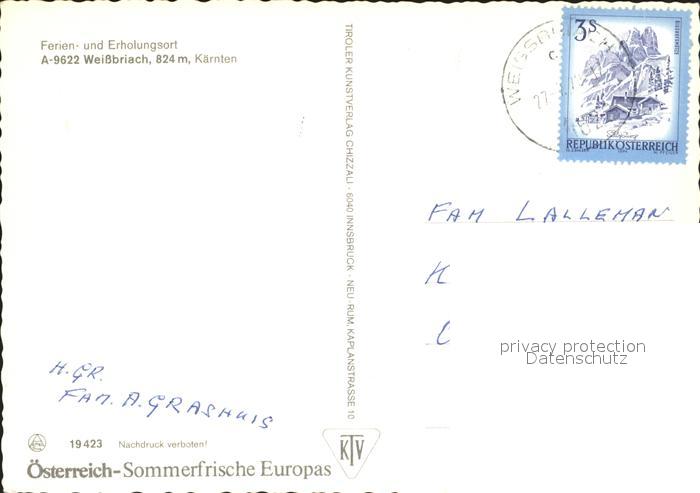 Ferien- und Erholungsort
A-9622 Weißbriach, 824 m, Kärnten
TIROLER KUNSTVERLAG CHIZZALI · 6040 INNSBRUCK - NEU-RUM, KAPLANSTRASSE 10
3S
REPUBLIK ÖSTERREICH
FAM LALLEMAN
K
privacy protection
Datenschutz
H. GR.
FAM. A. GRASHUIS
19423 Nachdruck verboten!
KTV
Österreich-Sommerfrische Europas